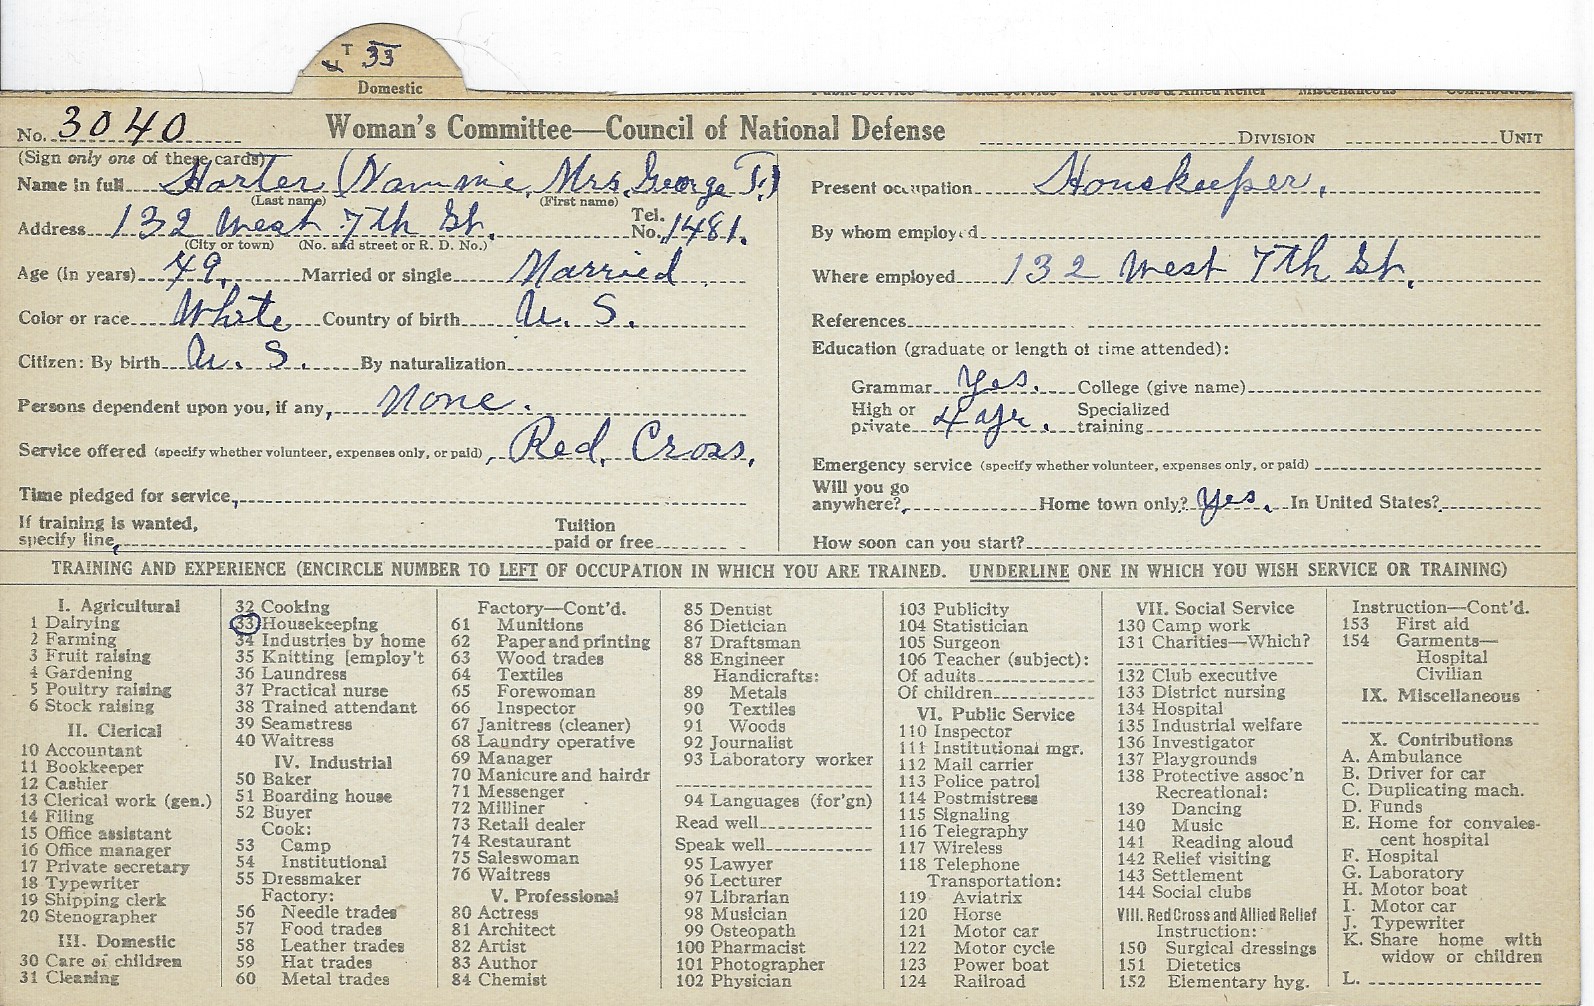 T 33
Domestic
No. 3040
Woman's Committee—Council of National Defense
DIVISION UNIT
(Sign only one of these cards)
Name in full Harter (Nammie, Mrs. George T.)
(Last name) (First name)
Address 132 West 7th St. Tel. No. 1481.
(City or town) (No. and street or R. D. No.)
Age (in years) 49. Married or single Married.
Color or race White Country of birth U. S.
Citizen: By birth U. S. By naturalization
Persons dependent upon you, if any, None.
Service offered (specify whether volunteer, expenses only, or paid), Red, Cross.
Time pledged for service,
If training is wanted,
specify line, Tuition paid or free
Present occupation Houskeeper.
By whom employed
Where employed 132 West 7th St.
References
Education (graduate or length of time attended):
Grammar Yes. College (give name)
High or private 4 yr. Specialized training
Emergency service (specify whether volunteer, expenses only, or paid)
Will you go anywhere? Home town only? Yes. In United States?
How soon can you start?
TRAINING AND EXPERIENCE (ENCIRCLE NUMBER TO LEFT OF OCCUPATION IN WHICH YOU ARE TRAINED. UNDERLINE ONE IN WHICH YOU WISH SERVICE OR TRAINING)
I. Agricultural
1 Dairying
2 Farming
3 Fruit raising
4 Gardening
5 Poultry raising
6 Stock raising
II. Clerical
10 Accountant
11 Bookkeeper
12 Cashier
13 Clerical work (gen.)
14 Filing
15 Office assistant
16 Office manager
17 Private secretary
18 Typewriter
19 Shipping clerk
20 Stenographer
III. Domestic
30 Care of children
31 Cleaning
32 Cooking
33 Housekeeping
34 Industries by home
35 Knitting [employ't
36 Laundress
37 Practical nurse
38 Trained attendant
39 Seamstress
40 Waitress
IV. Industrial
50 Baker
51 Boarding house
52 Buyer
Cook:
53 Camp
54 Institutional
55 Dressmaker
Factory:
56 Needle trades
57 Food trades
58 Leather trades
59 Hat trades
60 Metal trades
Factory—Cont'd.
61 Munitions
62 Paper and printing
63 Wood trades
64 Textiles
65 Forewoman
66 Inspector
67 Janitress (cleaner)
68 Laundry operative
69 Manager
70 Manicure and hairdr
71 Messenger
72 Milliner
73 Retail dealer
74 Restaurant
75 Saleswoman
76 Waitress
V. Professional
80 Actress
81 Architect
82 Artist
83 Author
84 Chemist
85 Dentist
86 Dietician
87 Draftsman
88 Engineer
Handicrafts:
89 Metals
90 Textiles
91 Woods
92 Journalist
93 Laboratory worker
94 Languages (for'gn)
Read well
Speak well
95 Lawyer
96 Lecturer
97 Librarian
98 Musician
99 Osteopath
100 Pharmacist
101 Photographer
102 Physician
103 Publicity
104 Statistician
105 Surgeon
106 Teacher (subject):
Of adults
Of children
VI. Public Service
110 Inspector
111 Institutional mgr.
112 Mail carrier
113 Police patrol
114 Postmistress
115 Signaling
116 Telegraphy
117 Wireless
118 Telephone
Transportation:
119 Aviatrix
120 Horse
121 Motor car
122 Motor cycle
123 Power boat
124 Railroad
VII. Social Service
130 Camp work
131 Charities—Which?
132 Club executive
133 District nursing
134 Hospital
135 Industrial welfare
136 Investigator
137 Playgrounds
138 Protective assoc'n
Recreational:
139 Dancing
140 Music
141 Reading aloud
142 Relief visiting
143 Settlement
144 Social clubs
VIII. Red Cross and Allied Relief
Instruction:
150 Surgical dressings
151 Dietetics
152 Elementary hyg.
Instruction—Cont'd.
153 First aid
154 Garments—
Hospital
Civilian
IX. Miscellaneous
X. Contributions
A. Ambulance
B. Driver for car
C. Duplicating mach.
D. Funds
E. Home for convales-
cent hospital
F. Hospital
G. Laboratory
H. Motor boat
I. Motor car
J. Typewriter
K. Share home with
widow or children
L.